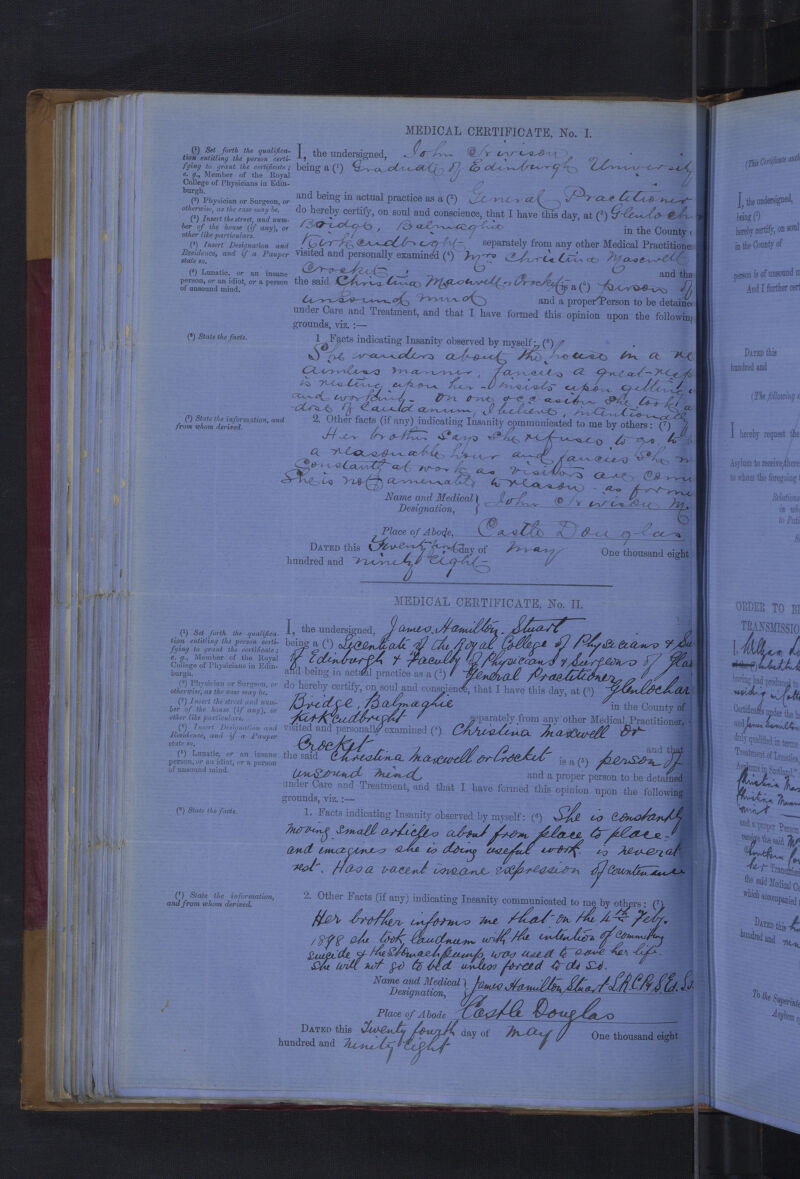 MEDICAL CERTIFICATE, No. I.
(¹) Set forth the qualifica-
tion entitling the person certi-
fying to grant the certificate;
e. g., Member of the Royal
College of Physicians in Edin-
burgh.
(²) Physician or Surgeon, or
otherwise, as the case may be.
(³) Insert the street, and num-
ber of the house (if any), or
other like particulars.
(⁴) Insert Designation and
Residence, and if a Pauper
state so.
(⁵) Lunatic, or an insane
person, or an idiot, or a person
of unsound mind.
I, the undersigned, John
being a (¹) Graduate of Edinburgh University
and being in actual practice as a (²) General Practitioner
do hereby certify, on soul and conscience, that I have this day, at (³) Glenloch
Bridge, Balmaghie in the County
Kirkcudbright separately from any other Medical Practitione
visited and personally examined (⁴) Mrs Christina Maxwell
Crocket and tha
the said Christina Maxwell or Crocket is a (⁵) person of
unsound mind and a proper Person to be detaine
under Care and Treatment, and that I have formed this opinion upon the following
grounds, viz. :—
(⁶) State the facts.
1 Facts indicating Insanity observed by myself; (⁶)
She wanders about the house in a
aimless manner, fancies a great
is resting upon her - insists upon getting
and working. On one occasion she took a
dose of laudanum, I believe, intentionally
(⁷) State the information, and
from whom derived.
2. Other facts (if any) indicating Insanity communicated to me by others: (⁷)
Her brother says she refuses to go to b
a reasonable hour and fancies she m
constantly at work as visitors are comi
She is not amenable to reason as forme
Name and Medical
Designation,
John M.
Place of Abode, Castle Douglas
DATED this Twenty day of May One thousand eight
hundred and ninety eight
MEDICAL CERTIFICATE, No. II.
(¹) Set forth the qualifica-
tion entitling the person certi-
fying to grant the certificate;
e. g., Member of the Royal
College of Physicians in Edin-
burgh.
(²) Physician or Surgeon, or
otherwise, as the case may be.
(³) Insert the street and num-
ber of the house (if any), or
other like particulars.
(⁴) Insert Designation and
Residence, and if a Pauper
state so.
(⁵) Lunatic, or an insane
person, or an idiot, or a person
of unsound mind.
I, the undersigned, James Hamilton Stuart
being a (¹) Licentiate of the Royal College of Physicians & Su
of Edinburgh & Faculty of Physicians & Surgeons of Glas
and being in actual practice as a (²) General Practitioner
do hereby certify, on soul and conscience, that I have this day, at (³) Glenlochar
Bridge, Balmaghie in the County of
Kirkcudbright separately from any other Medical Practitioner,
visited and personally examined (⁴) Christina Maxwell or
Crocket and that
the said Christina Maxwell or Crocket is a (⁵) person of
unsound mind and a proper person to be detained
under Care and Treatment, and that I have formed this opinion upon the following
grounds, viz. :—
(⁶) State the facts.
1. Facts indicating Insanity observed by myself: (⁶) She is constantly
moving small articles about from place to place -
and imagines she is doing useful work is never at
rest. Has a vacent insane expression of countenance
(⁷) State the information,
and from whom derived.
2. Other Facts (if any) indicating Insanity communicated to me by others: (⁷)
Her brother informs me that on the 4th Feby.
1898 she took laudnum with the intention of commiting
suicide & the Stomach pump, was used to save her life.
She will not go to bed unless forced to do so.
Name and Medical
Designation,
James Hamilton Stuart L.R.C.P. & S. Ed.
Place of Abode Castle Douglas
DATED this Twenty fourth day of May One thousand eight
hundred and Ninety Eight
I, the undersigned,
being (¹)
hereby certify, on soul
in the County of
person is of unsound m
And I further cert
DATED this
hundred and
(The following
I hereby request the
Asylum to receive
to whom the foregoing
ORDER TO
TRANSMISSIO
and a proper Person
receive the said
the said Medical
accompanied
DATED this
hundred and
To the Superinte
Asylum